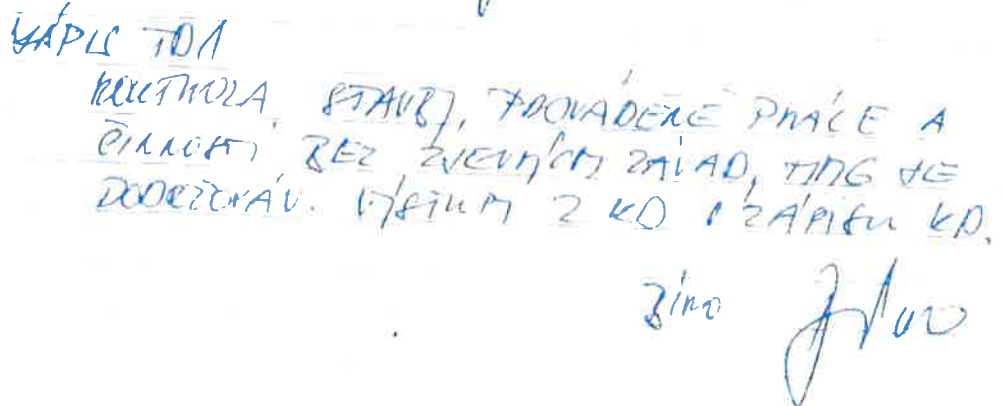 ZÁPIS TDI
KONTROLA STAVBY, PROVÁDĚNÉ PRÁCE A
ČINNOSTI BEZ ZJEVNÝCH ZÁVAD, HMG JE
DODRŽOVÁN. VÝSTUP Z KD V ZÁPISU KD.